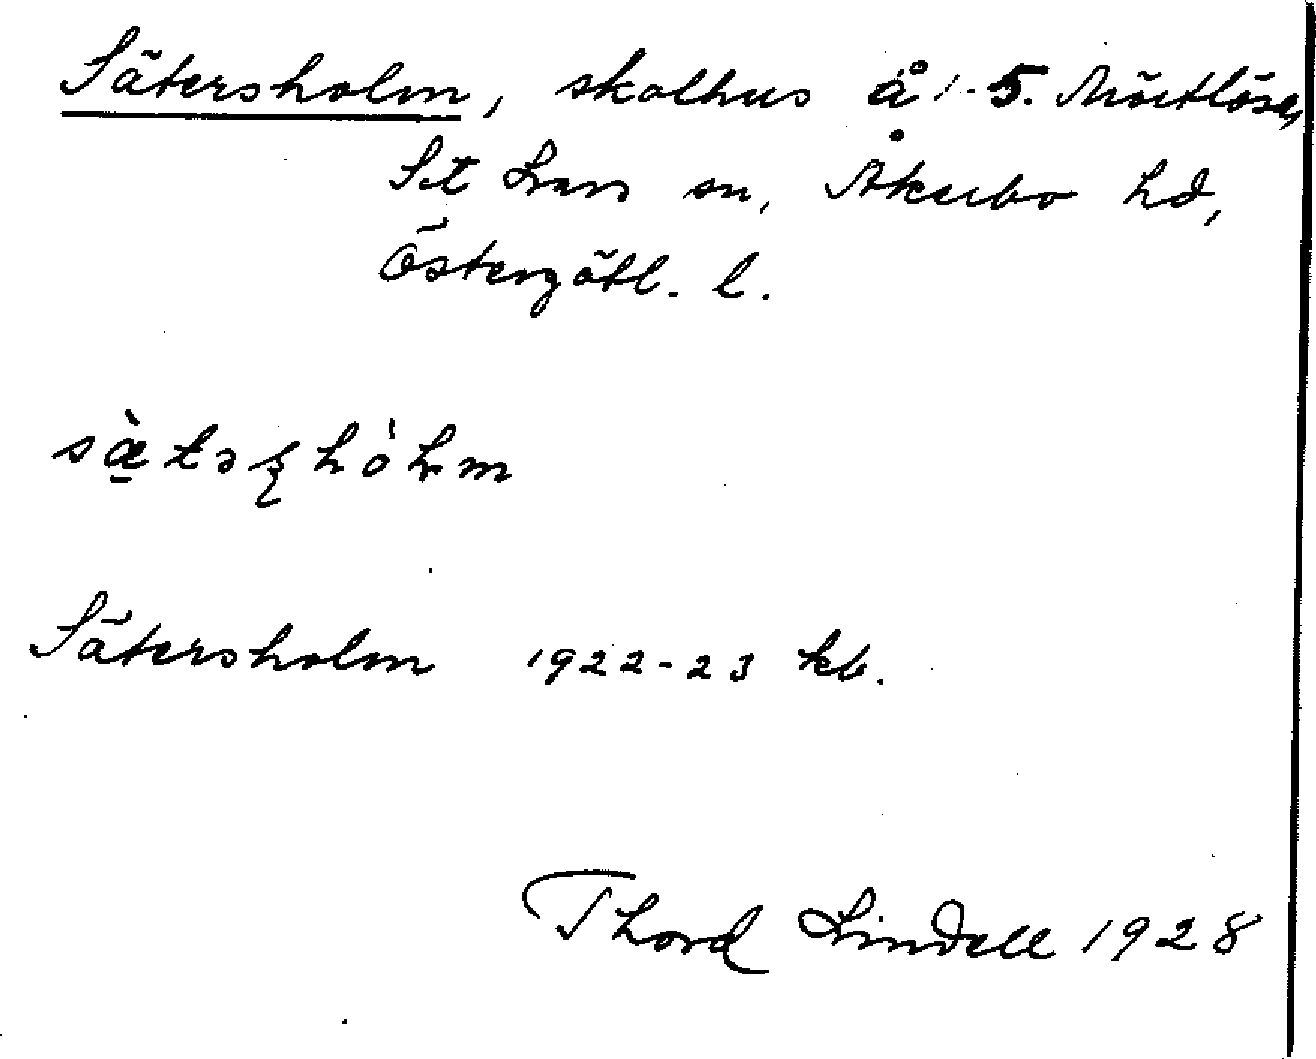 Sätersholm, skolhus å 1-5. Mörtlösa,
S:t Lars sn, Åkerbo hd,
Östergötl. l.
Sätersholm 1922-23 kb.
Thord Lindell 1928